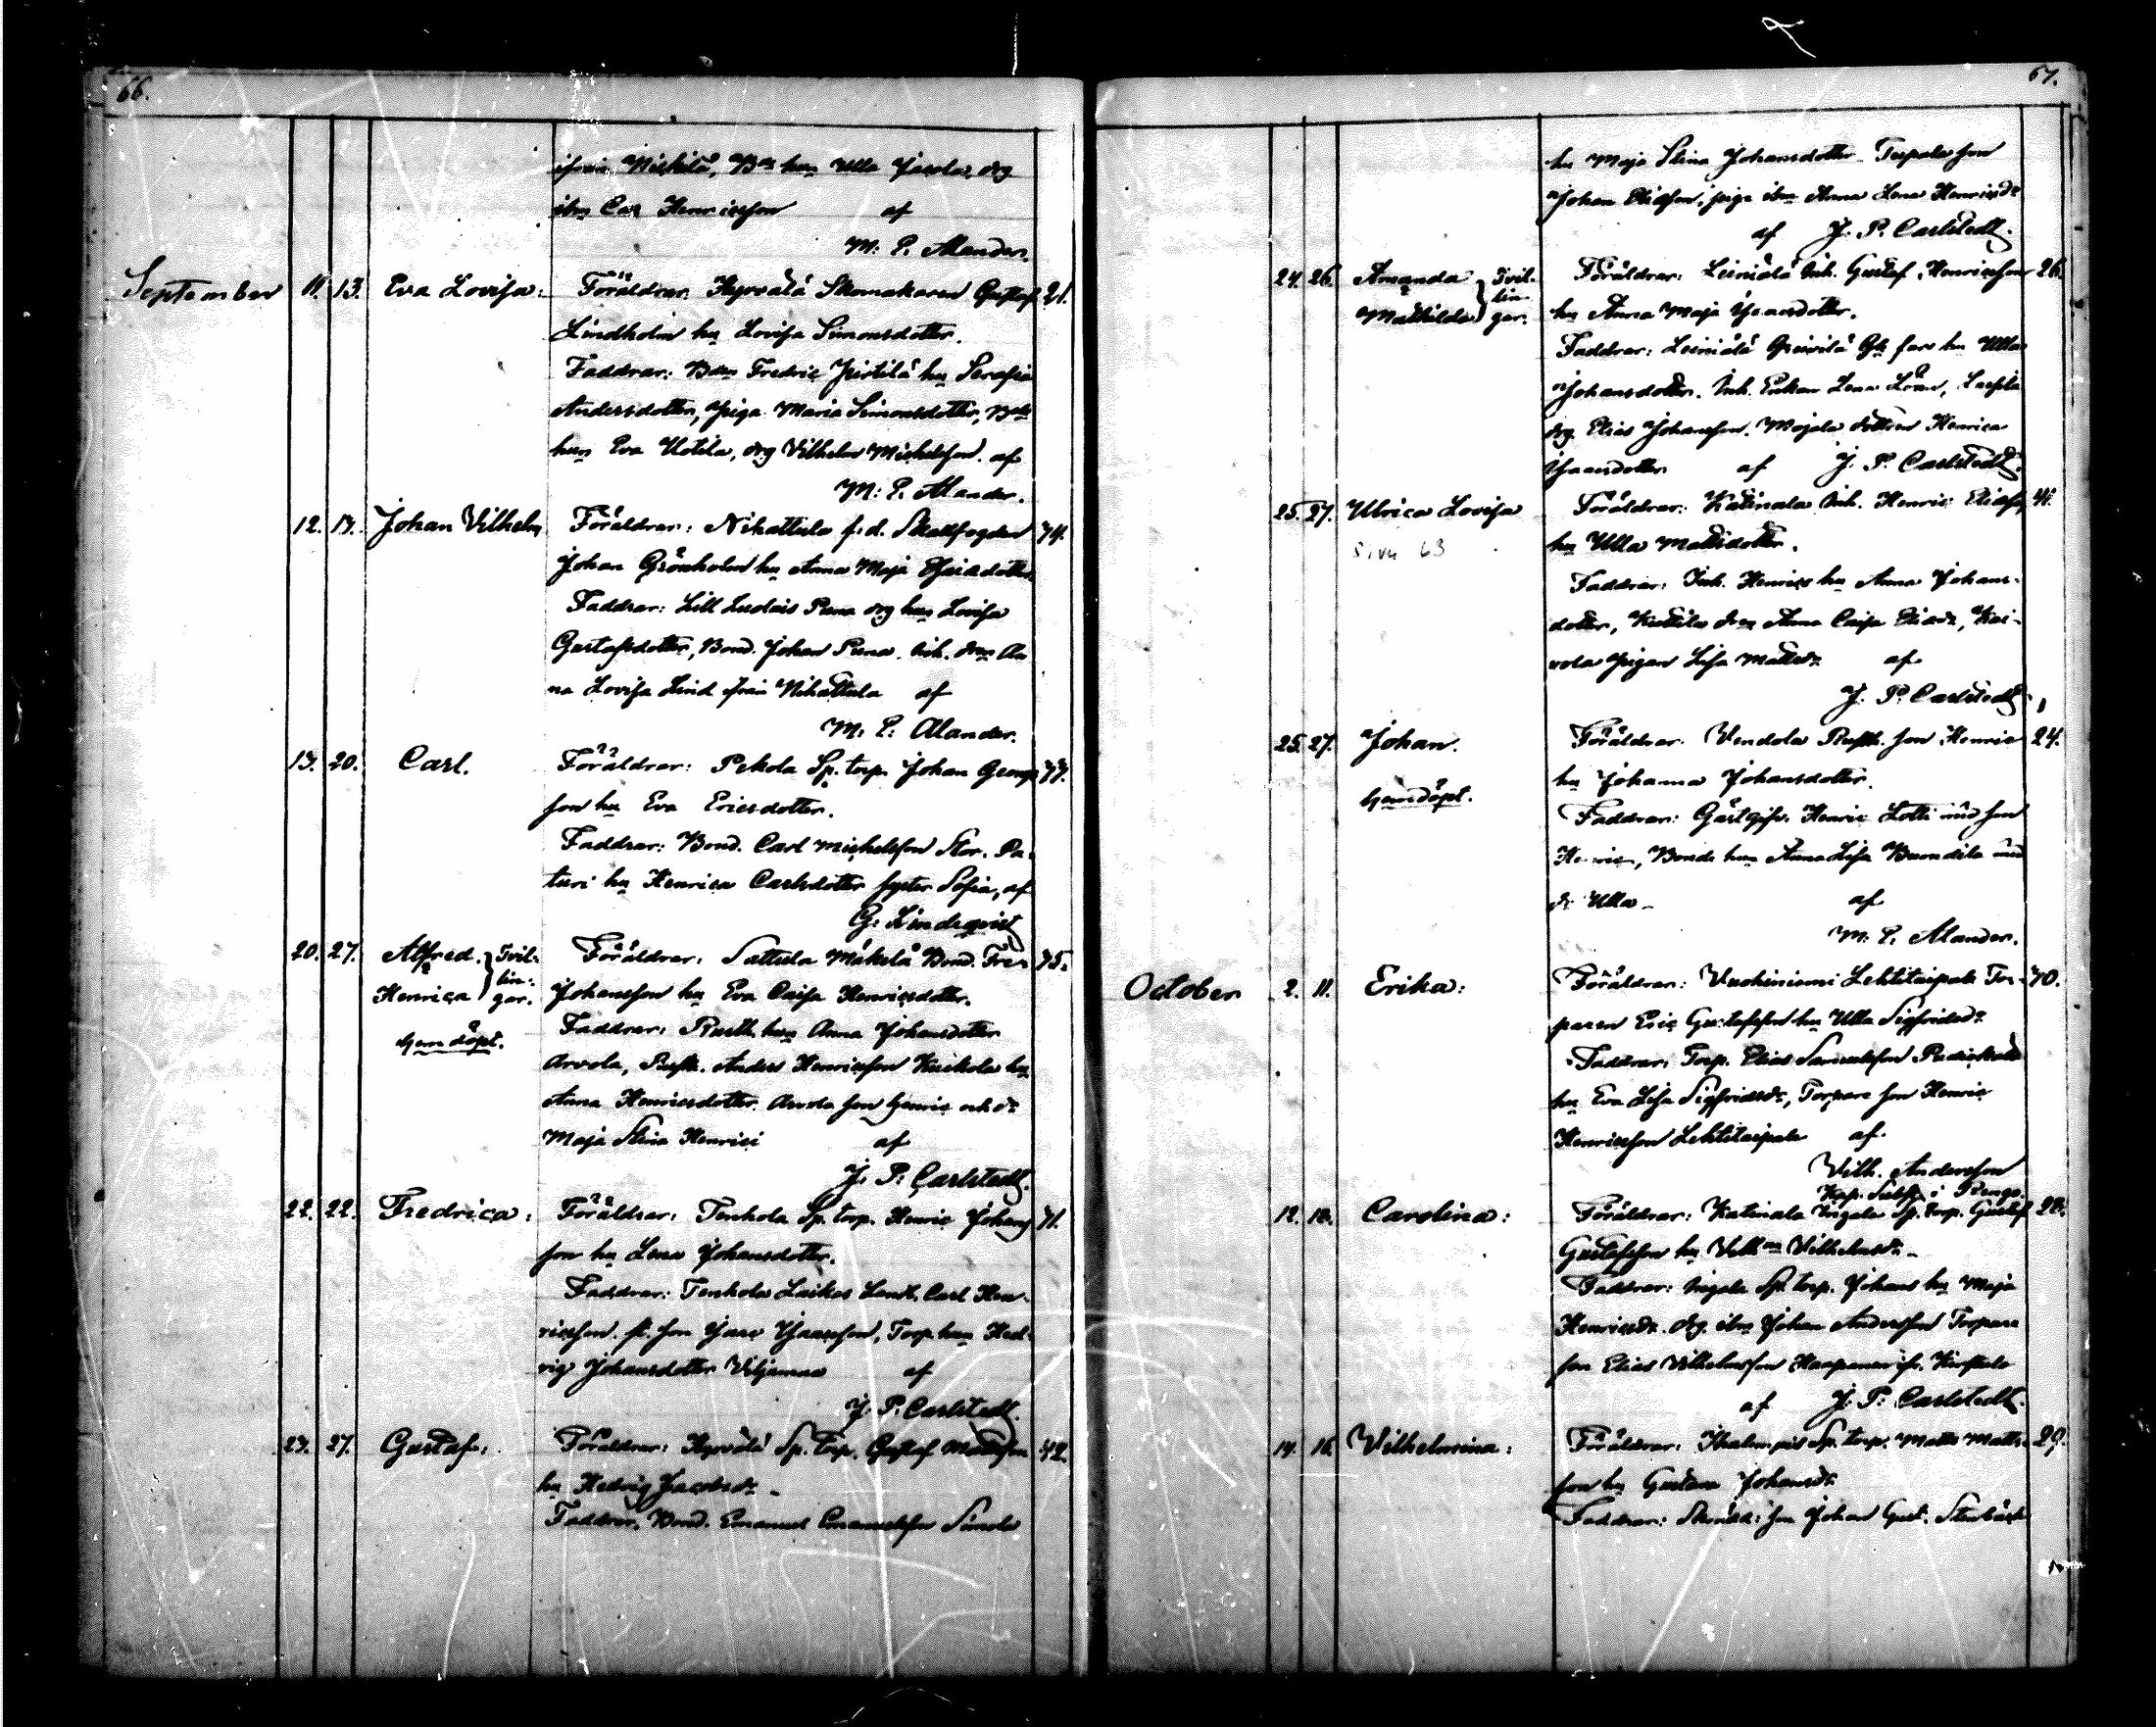 66.
ifrån Nickilä, Bds hun Ulla Jacola, drg
ibm Carl Henricsson af
M: E. Alander.
September 11. 13. Eva Lovisa: Föräldrar: Hyrvälä Skomakaren Gustaf 21.
Lindholm hu Lovisa Simonsdotter.
Faddrar: Bden Fredric hu Serafia
Andersdotter, Piga Maria Simonsdotter, Bds
hun Eva Uotila, drg Vilhelm Michelsson. af
M: E. Alander.
12. 17. Johan Vilhelm Föräldrar: Nihattula f.d. Skallfogden 74.
Johan Grönholm hu Anna Maja
Faddrar: Lill Luolais Puna drg hun Lovisa
Gustafsdotter, Bond. Johan Puna. Inh. An
na Lovisa Lind från Nihattula af
M. E. Alander.
13. 20. Carl. Föräldrar: Pekola Sp. torp. Johan Georgs 77.
son hu Eva Ericsdotter.
Faddrar: Bond. Carl Michelsson Stor. Pa-
turi hu Henrica Carlsdotter syster Sofia, af
G. Lindeqvist
20. 27. Alfred. Henrica } Tvil-lin-gar. Föräldrar: Sattula Mäkelä Bond. Fre- 75.
Johansson hu Eva Caisa Henricsdotter.
hemdöpt. Faddrar: Rusth. hun Anna Johansdotter
Arvola, Rusth. Anders Henricsson Kuckola hu
Anna Henricsdotter. Arvola son Henric och dr
Maja Stina Henrici af
J. P. Carlstedt.
22. 22. Fredrica: Föräldrar: Tenhola Sp. torp. Henric Johans 71.
son hu Lena Johansdotter.
Faddrar: Tenhola Laikas Landb. Carl Hen-
ricsson. son Isaac Isaacsson, Torp. hun Hed-
vig Johansdotter Viljamaa af
J. P. Carlstedt.
23. 27. Gustaf: Föräldrar: Hyrvälä Sp. torp. Gustaf Mattsson 42.
hu Hedvig Jacobsdr
Faddrar. Bond. Emanuel Emanuelsson Simola
67.
hu Maja Stina Johansdotter Tupala son
Johan Eliasson, piga ibm Anna Lena Henricsdr
af J. P. Carlstedt.
24. 26. Amanda Mathilda } Tvil-lin-gar. Föräldrar: Leiniälä Inh. Gustaf Henricsson 26.
hu Anna Maja Isaacsdotter.
Faddrar: Leiniälä hu Ulla
Johansdotter. Inh. Enkan Lena
drg Elias Johansson. Majala dottren Henrica
Isaacsdotter af J. P. Carlstedt.
25. 27. Ulrica Lovisa Föräldrar: Katinala Inh. Henric Eliasson 41.
sivu 63 hu Ulla Mattsdotter.
Faddrar: Inh. Henrics hu Anna Johans-
dotter, Kuttila Anna Caisa Eliasdr, Kai-
vola Pigan Lisa Mattsdr af
J. P. Carlstedt.
25. 27. Johan. Föräldrar: Vendola Rusth. son Henric 24.
hemdöpt. hu Johanna Johansdotter.
Faddrar: Gästgifv. Henric Lotti med son
Henric, Bonde hun Anna Lisa med
dr Ulla af
M. E. Alander.
October 2. 11. Erika: Föräldrar: Vuohiniemi Lehtitaipale Tor- 70.
paren Eric Gustafsson hu Ulla Sigfridsdr
Faddrar: Torp. Elias Samuelsson
hu Eva Lisa Sigfridsdr, Torpare son Henric
Henricsson Lehtitaipale af
Vilh. Andersson
Kap. Subst. i Renge.
12. 18. Carolina: Föräldrar: Katinala Ingala Sp. torp. Gustaf 28.
Gustafsson hu Vilh:na Vilhelmsdr
Faddrar: Ingala Sp. torp. Johans hu Maja
Henricsdr. drg ibm Johan Andersson Torpare
son Elias Vilhelmsson
af J. P. Carlstedt.
14. 16. Vilhelmina: Föräldrar: Sp. torp. Matts Matts- 29.
son hu Gustava Johansdr
Faddrar: son Johan Gust. Stenbäck